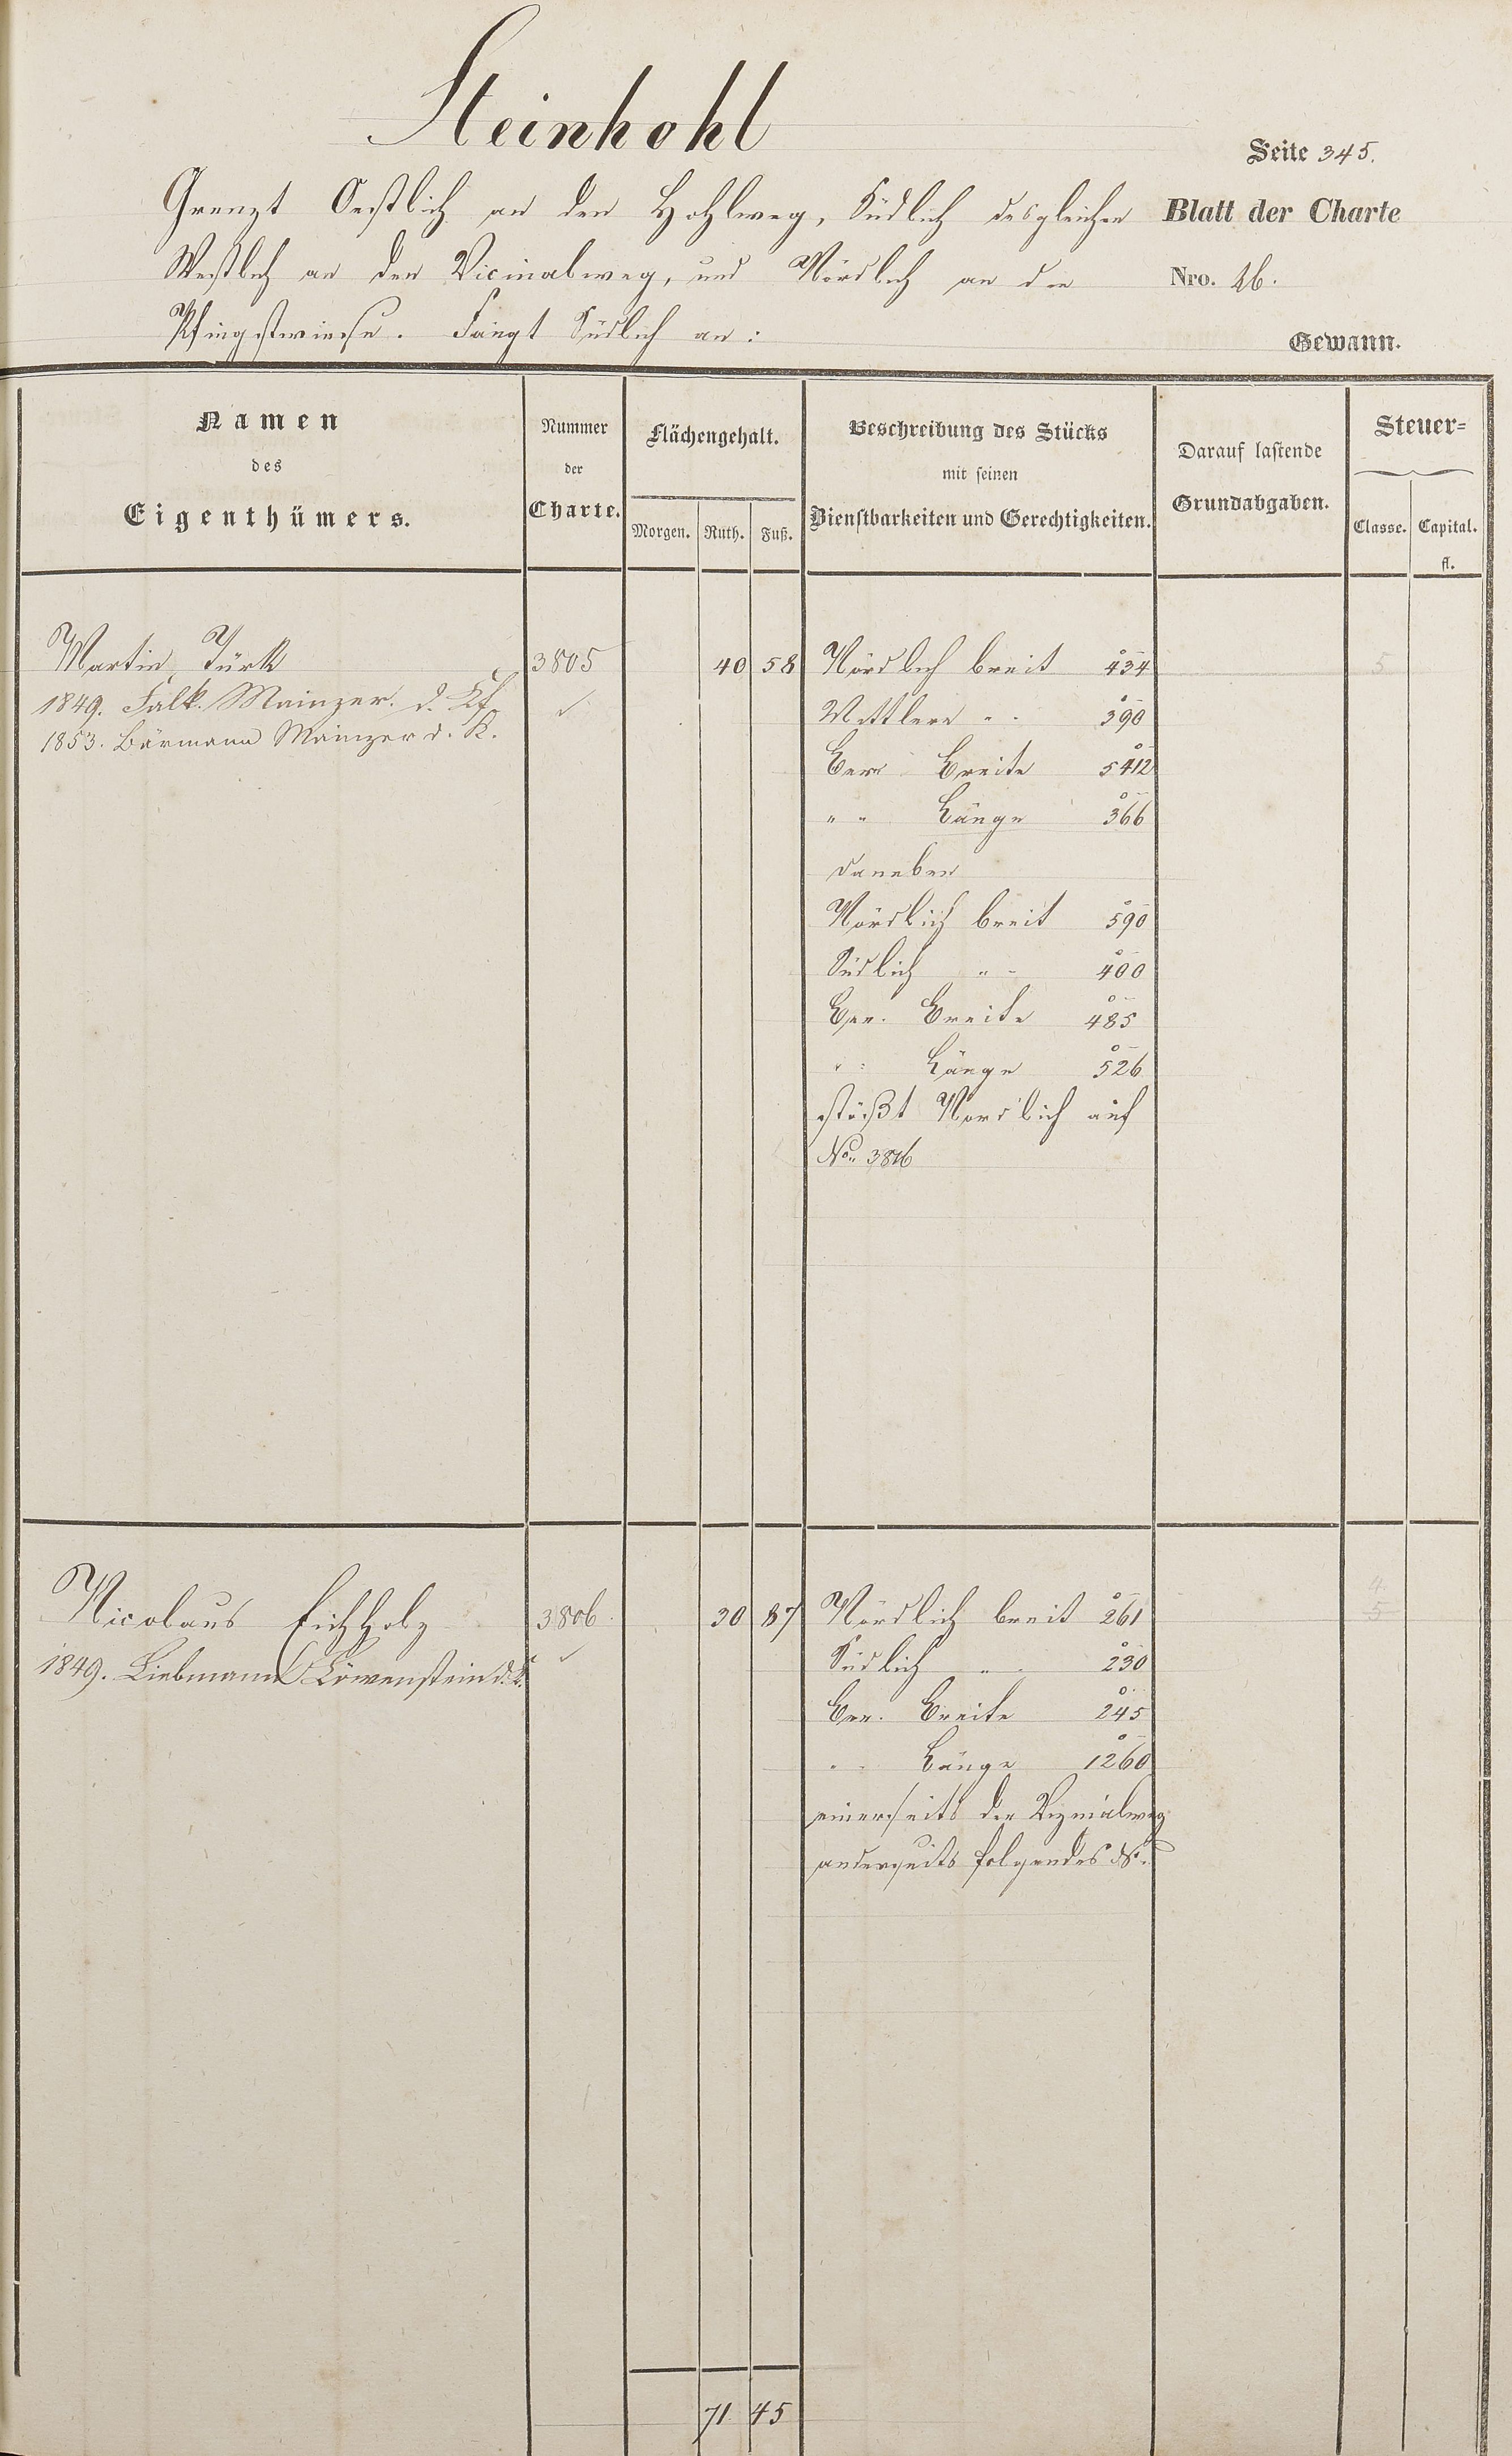 Steinhohl
Seite 345.
Grenzt Oestlich an den Hohlweg, Südlich desgleichen
Blatt der Charte
Westlich an den Vicinalweg, und Nördlich an die
Nro. 26.
Pfingstwiese. Fängt Südlich an:
Gewann.
Namen
des
Eigenthümers.
Nummer
der
Charte.
Flächengehalt.
Morgen. Ruth. Fuß.
Beschreibung des Stücks
mit seinen
Dienstbarkeiten und Gerechtigkeiten.
Darauf lastende
Grundabgaben.
Steuer=
Classe. Capital.
fl.
Martin Türk 3805 40 58 Nördlich breit 434 5
1849. Falk. Mainzer. d. Kf
Mittlere " " 390
1853. Bärmann Mainzer d. K.
Ber. Breite 5412
" " Länge 366
daneben
Nördlich breit 590
Südlich " " 400
Ber. Breite 485
" " Länge 526
stößt Nördlich auf
No. 3816
4.
Nicolaus Eichholz 3806. 30 87 Nördlich breit 261 5
1849. Liebmann Löwenstein d. K.
Südlich " " 230
Ber. Breite 245
" " Länge 1260
einerseits der Vizinalweg
anderseits folgendes No.
71 45